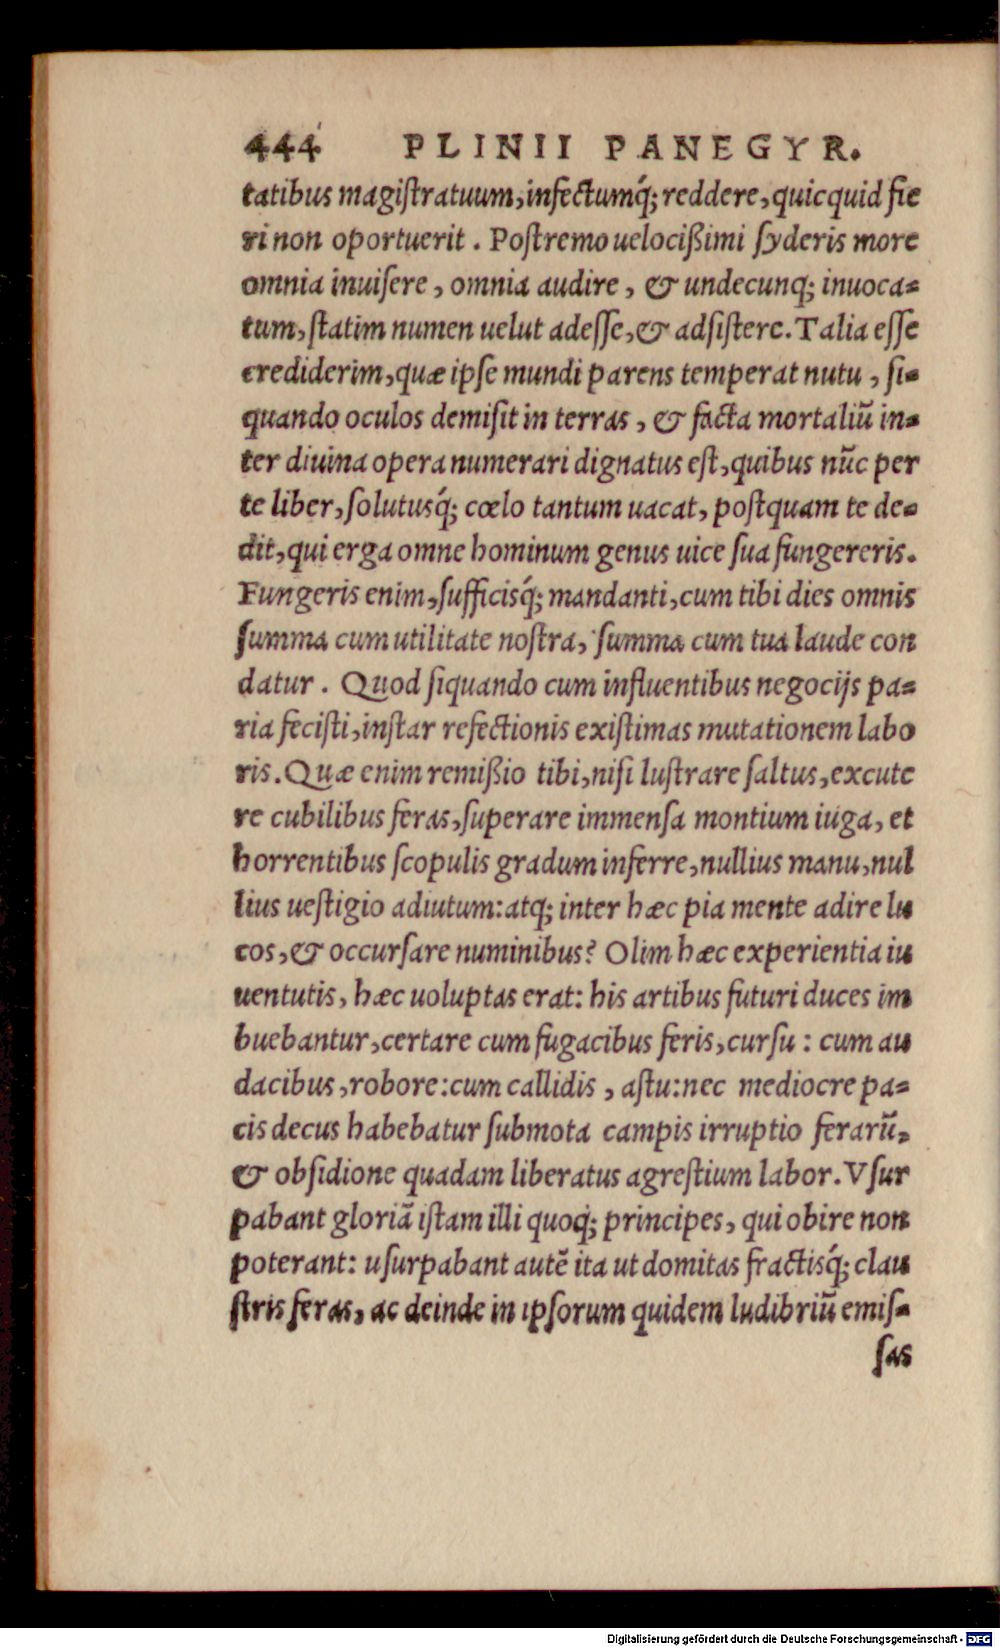 444 PLINII PANEGYR.
tatibus magiſtratuum, infectumq́; reddere, quicquid fie
ri non oportuerit. Poſtremo uelocißimi ſyderis more
omnia inuiſere, omnia audire, & undecunq; inuoca-
tum, ſtatim numen uelut adeſſe, & adſiſtere. Talia eſſe
crediderim, quæ ipſe mundi parens temperat nutu, ſi-
quando oculos demiſit in terras, & facta mortaliũ in-
ter diuina opera numerari dignatus eſt, quibus nũc per
te liber, ſolutusq́; cœlo tantum uacat, poſtquam te de-
dit, qui erga omne hominum genus uice ſua fungereris.
Fungeris enim, ſufficisq́; mandanti, cum tibi dies omnis
ſumma cum utilitate noſtra, ſumma cum tua laude con
datur. Quod ſiquando cum influentibus negocijs pa-
ria feciſti, inſtar refectionis exiſtimas mutationem labo
ris. Quæ enim remißio tibi, niſi luſtrare ſaltus, excute
re cubilibus feras, ſuperare immenſa montium iuga, et
horrentibus ſcopulis gradum inferre, nullius manu, nul
lius ueſtigio adiutum: atq; inter hæc pia mente adire lu
cos, & occurſare numinibus? Olim hæc experientia iu
uentutis, hæc uoluptas erat: his artibus futuri duces im
buebantur, certare cum fugacibus feris, curſu: cum au
dacibus, robore: cum callidis, aſtu: nec mediocre pa-
cis decus habebatur ſubmota campis irruptio ferarũ,
& obſidione quadam liberatus agreſtium labor. Vſur
pabant gloriã iſtam illi quoq; principes, qui obire non
poterant: uſurpabant autẽ ita ut domitas fractisq́; clau
ſtris feras, ac deinde in ipſorum quidem ludibriũ emiſ-
ſas
Digitalisierung gefördert durch die Deutsche Forschungsgemeinschaft - DFG